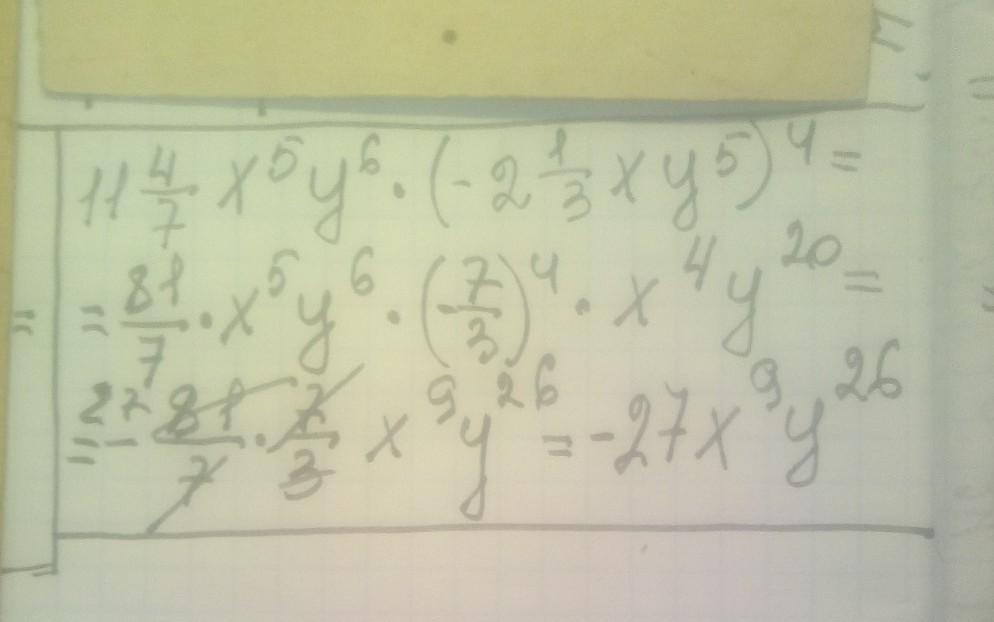 11 4/7 x⁵y⁶ · (-2 1/3 xy⁵)⁴ =
= 81/7 · x⁵y⁶ · (-7/3)⁴ · x⁴y²⁰ =
= - 27 81/7 · 7/3 x⁹y²⁶ = -27x⁹y²⁶
=